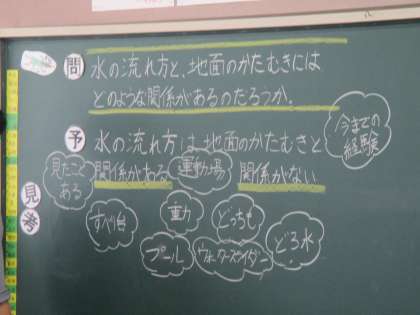 問 水の流れ方と、地面のかたむきには
どのような関係があるのだろうか。
予 水の流れ方は地面のかたむきと
関係がある 関係がない
今までの
経験
見たこと
ある
運動場
見
考
すべり台
重力
どっちも
プール
ウォータースライダー
どろ水